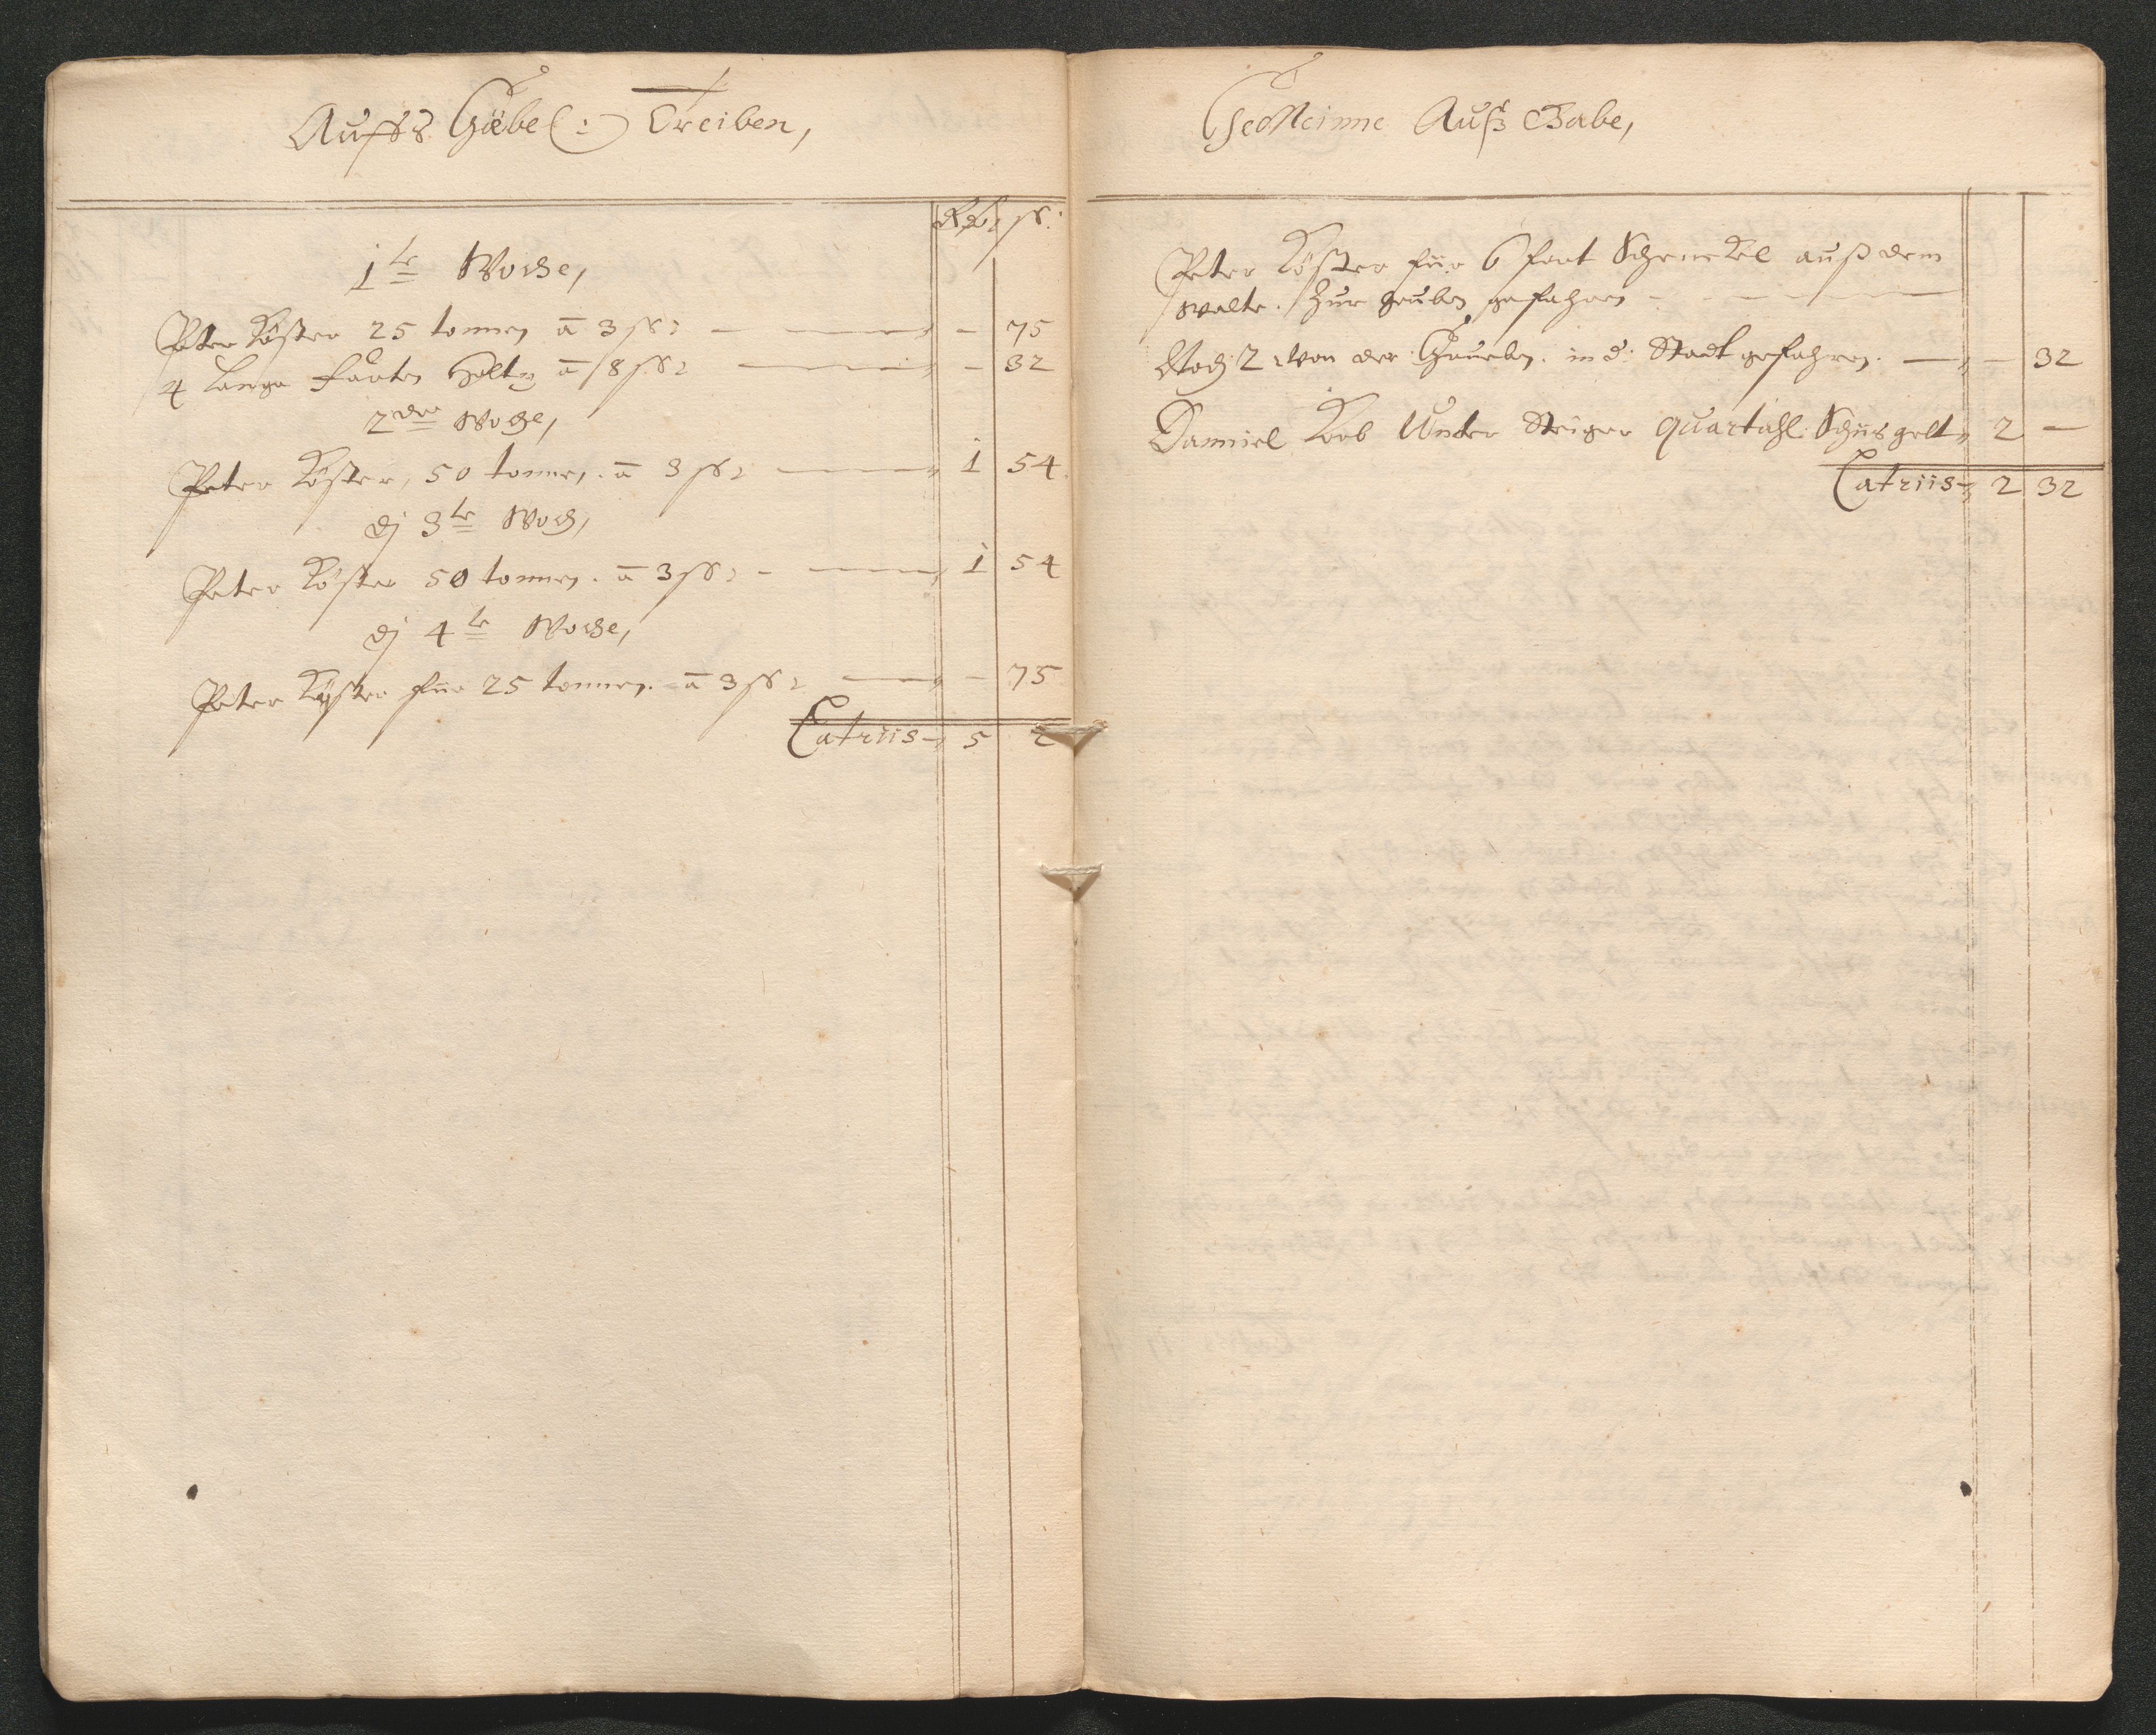 Auffs Gäbel: Treiben,
Rd, ß:
1te Woche,
Peter Köster 25 tonnen ā 3 ß: - 75
4 Lange fauten Holtz ā 8 ß: - 32
2der Woche,
Peter Köster, 50 tonnen. ā 3 ß: 1 54
Dj 3te Woch,
Peter Köster 50 tonnen. ā 3 ß: 1 54
Dj 4te Woche,
Peter Köster für 25 tonnen. ā 3 ß: - 75
Latriis 5 2
GeMeinne Auß Gabe,
Peter Köster für 6 fort Schenckel auß dem
walte. Zur gruben gefahren
Noch 2 von der Grueben. in d: Stadt gefahren. - 32
Danniel Koob Under Steiger quartahl Schusgelt 2 -
Latriis 2 32